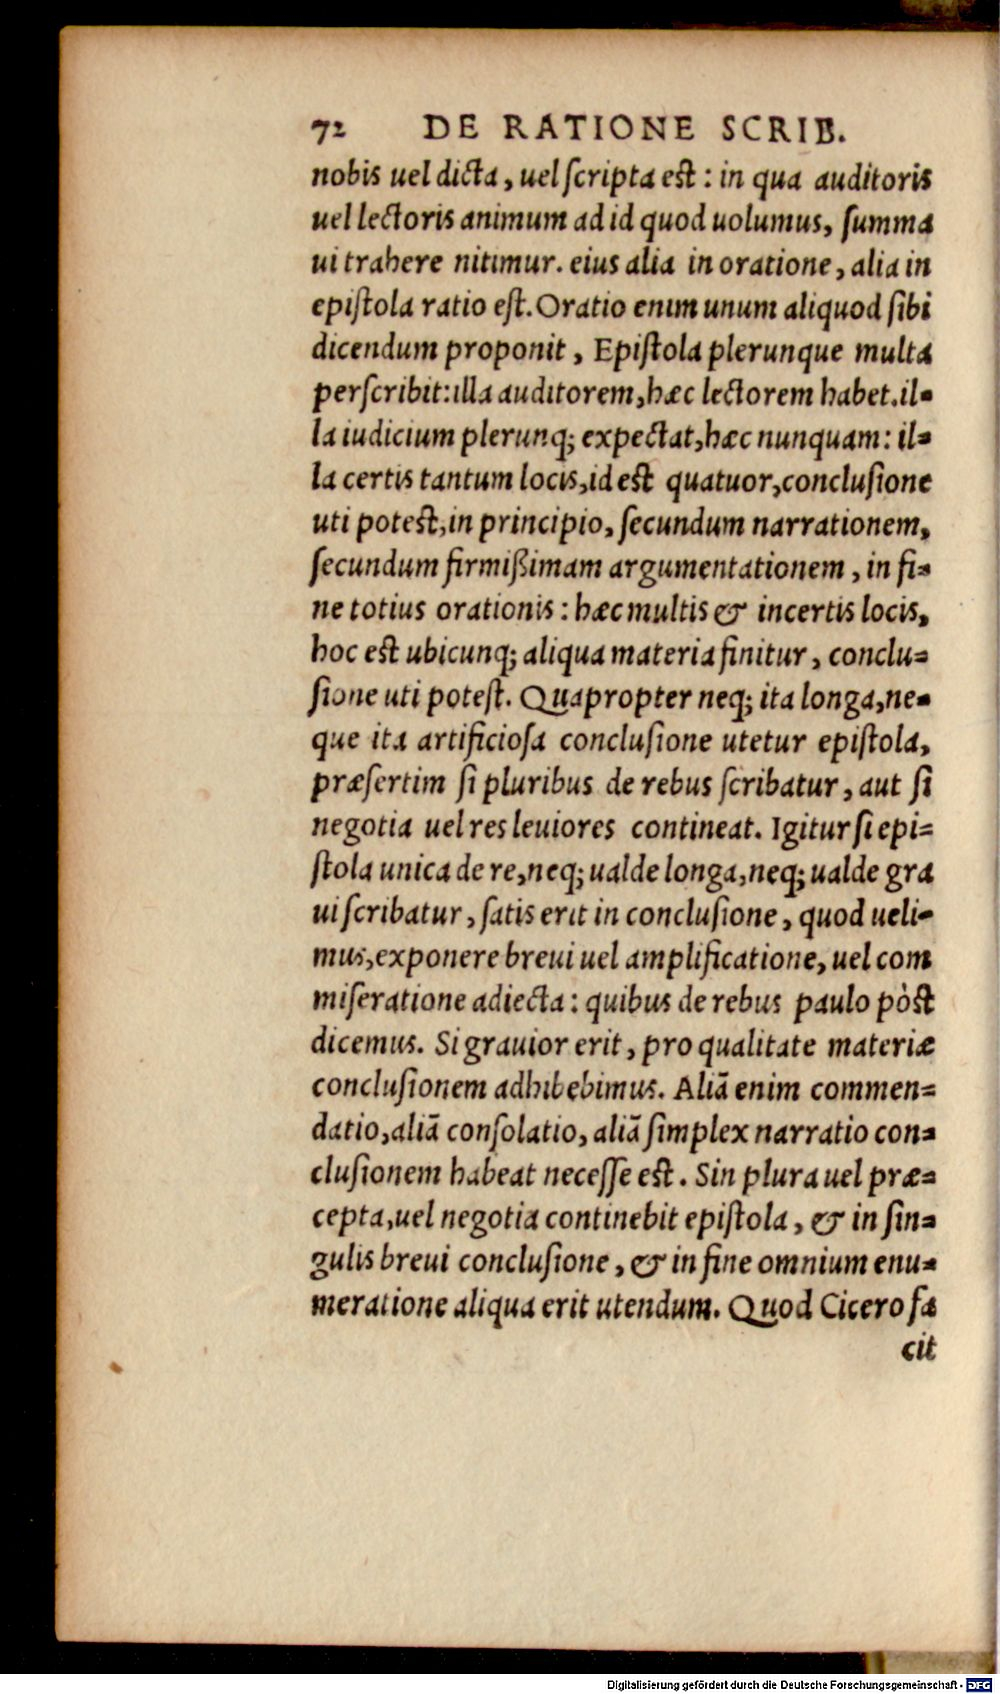 72 DE RATIONE SCRIB.
nobis uel dicta, uel ſcripta est: in qua auditoris
uel lectoris animum ad id quod uolumus, ſumma
ui trahere nitimur. eius alia in oratione, alia in
epiſtola ratio eſt. Oratio enim unum aliquod ſibi
dicendum proponit, Epiſtola plerunque multa
perſcribit: illa auditorem, hæc lectorem habet. il-
la iudicium plerunq; expectat, hæc nunquam: il-
la certis tantum locis, id est quatuor, concluſione
uti potest, in principio, ſecundum narrationem,
ſecundum firmißimam argumentationem, in fi-
ne totius orationis: hæc multis & incertis locis,
hoc est ubicunq; aliqua materia finitur, conclu-
ſione uti poteſt. Quapropter neq; ita longa, ne-
que ita artificioſa concluſione utetur epiſtola,
præſertim ſi pluribus de rebus ſcribatur, aut ſi
negotia uel res leuiores contineat. Igitur ſi epi-
ſtola unica de re, neq; ualde longa, neq; ualde gra
ui ſcribatur, ſatis erit in concluſione, quod ueli-
mus, exponere breui uel amplificatione, uel com
miſeratione adiecta: quibus de rebus paulo pòst
dicemus. Si grauior erit, pro qualitate materiæ
concluſionem adhibebimus. Aliã enim commen-
datio, aliã conſolatio, aliã ſimplex narratio con-
cluſionem habeat neceſſe est. Sin plura uel præ-
cepta, uel negotia continebit epiſtola, & in ſin-
gulis breui concluſione, & in fine omnium enu-
meratione aliqua erit utendum. Quod Cicero fa
cit
Digitalisierung gefördert durch die Deutsche Forschungsgemeinschaft - DFG